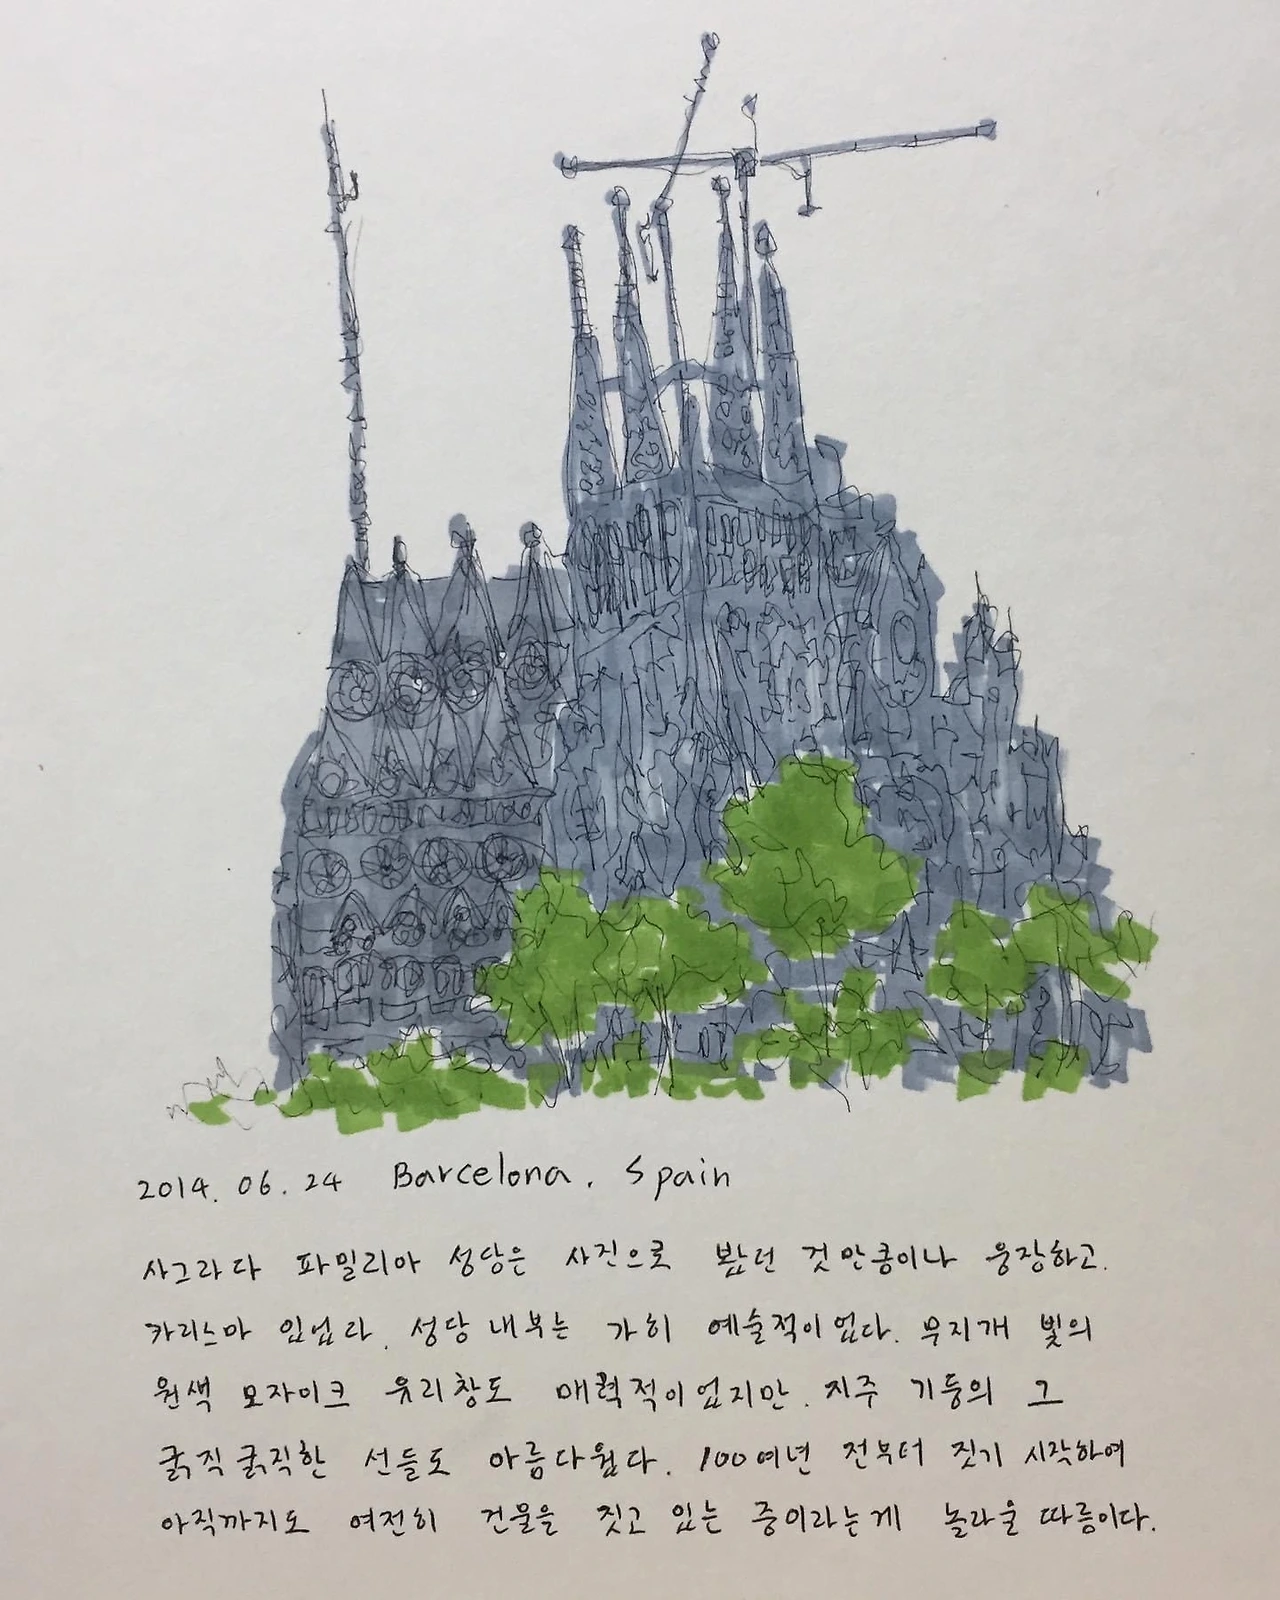 2014. 06. 24 Barcelona. Spain
사그라다 파밀리아 성당은 사진으로 봤던 것만큼이나 웅장하고.
카리스마 있었다. 성당 내부는 가히 예술적이었다. 무지개 빛의
원색 모자이크 유리창도 매력적이었지만. 지주 기둥의 그
굵직굵직한 선들도 아름다웠다. 100여년 전부터 짓기 시작하여
아직까지도 여전히 건물을 짓고 있는 중이라는게 놀라울 따름이다.